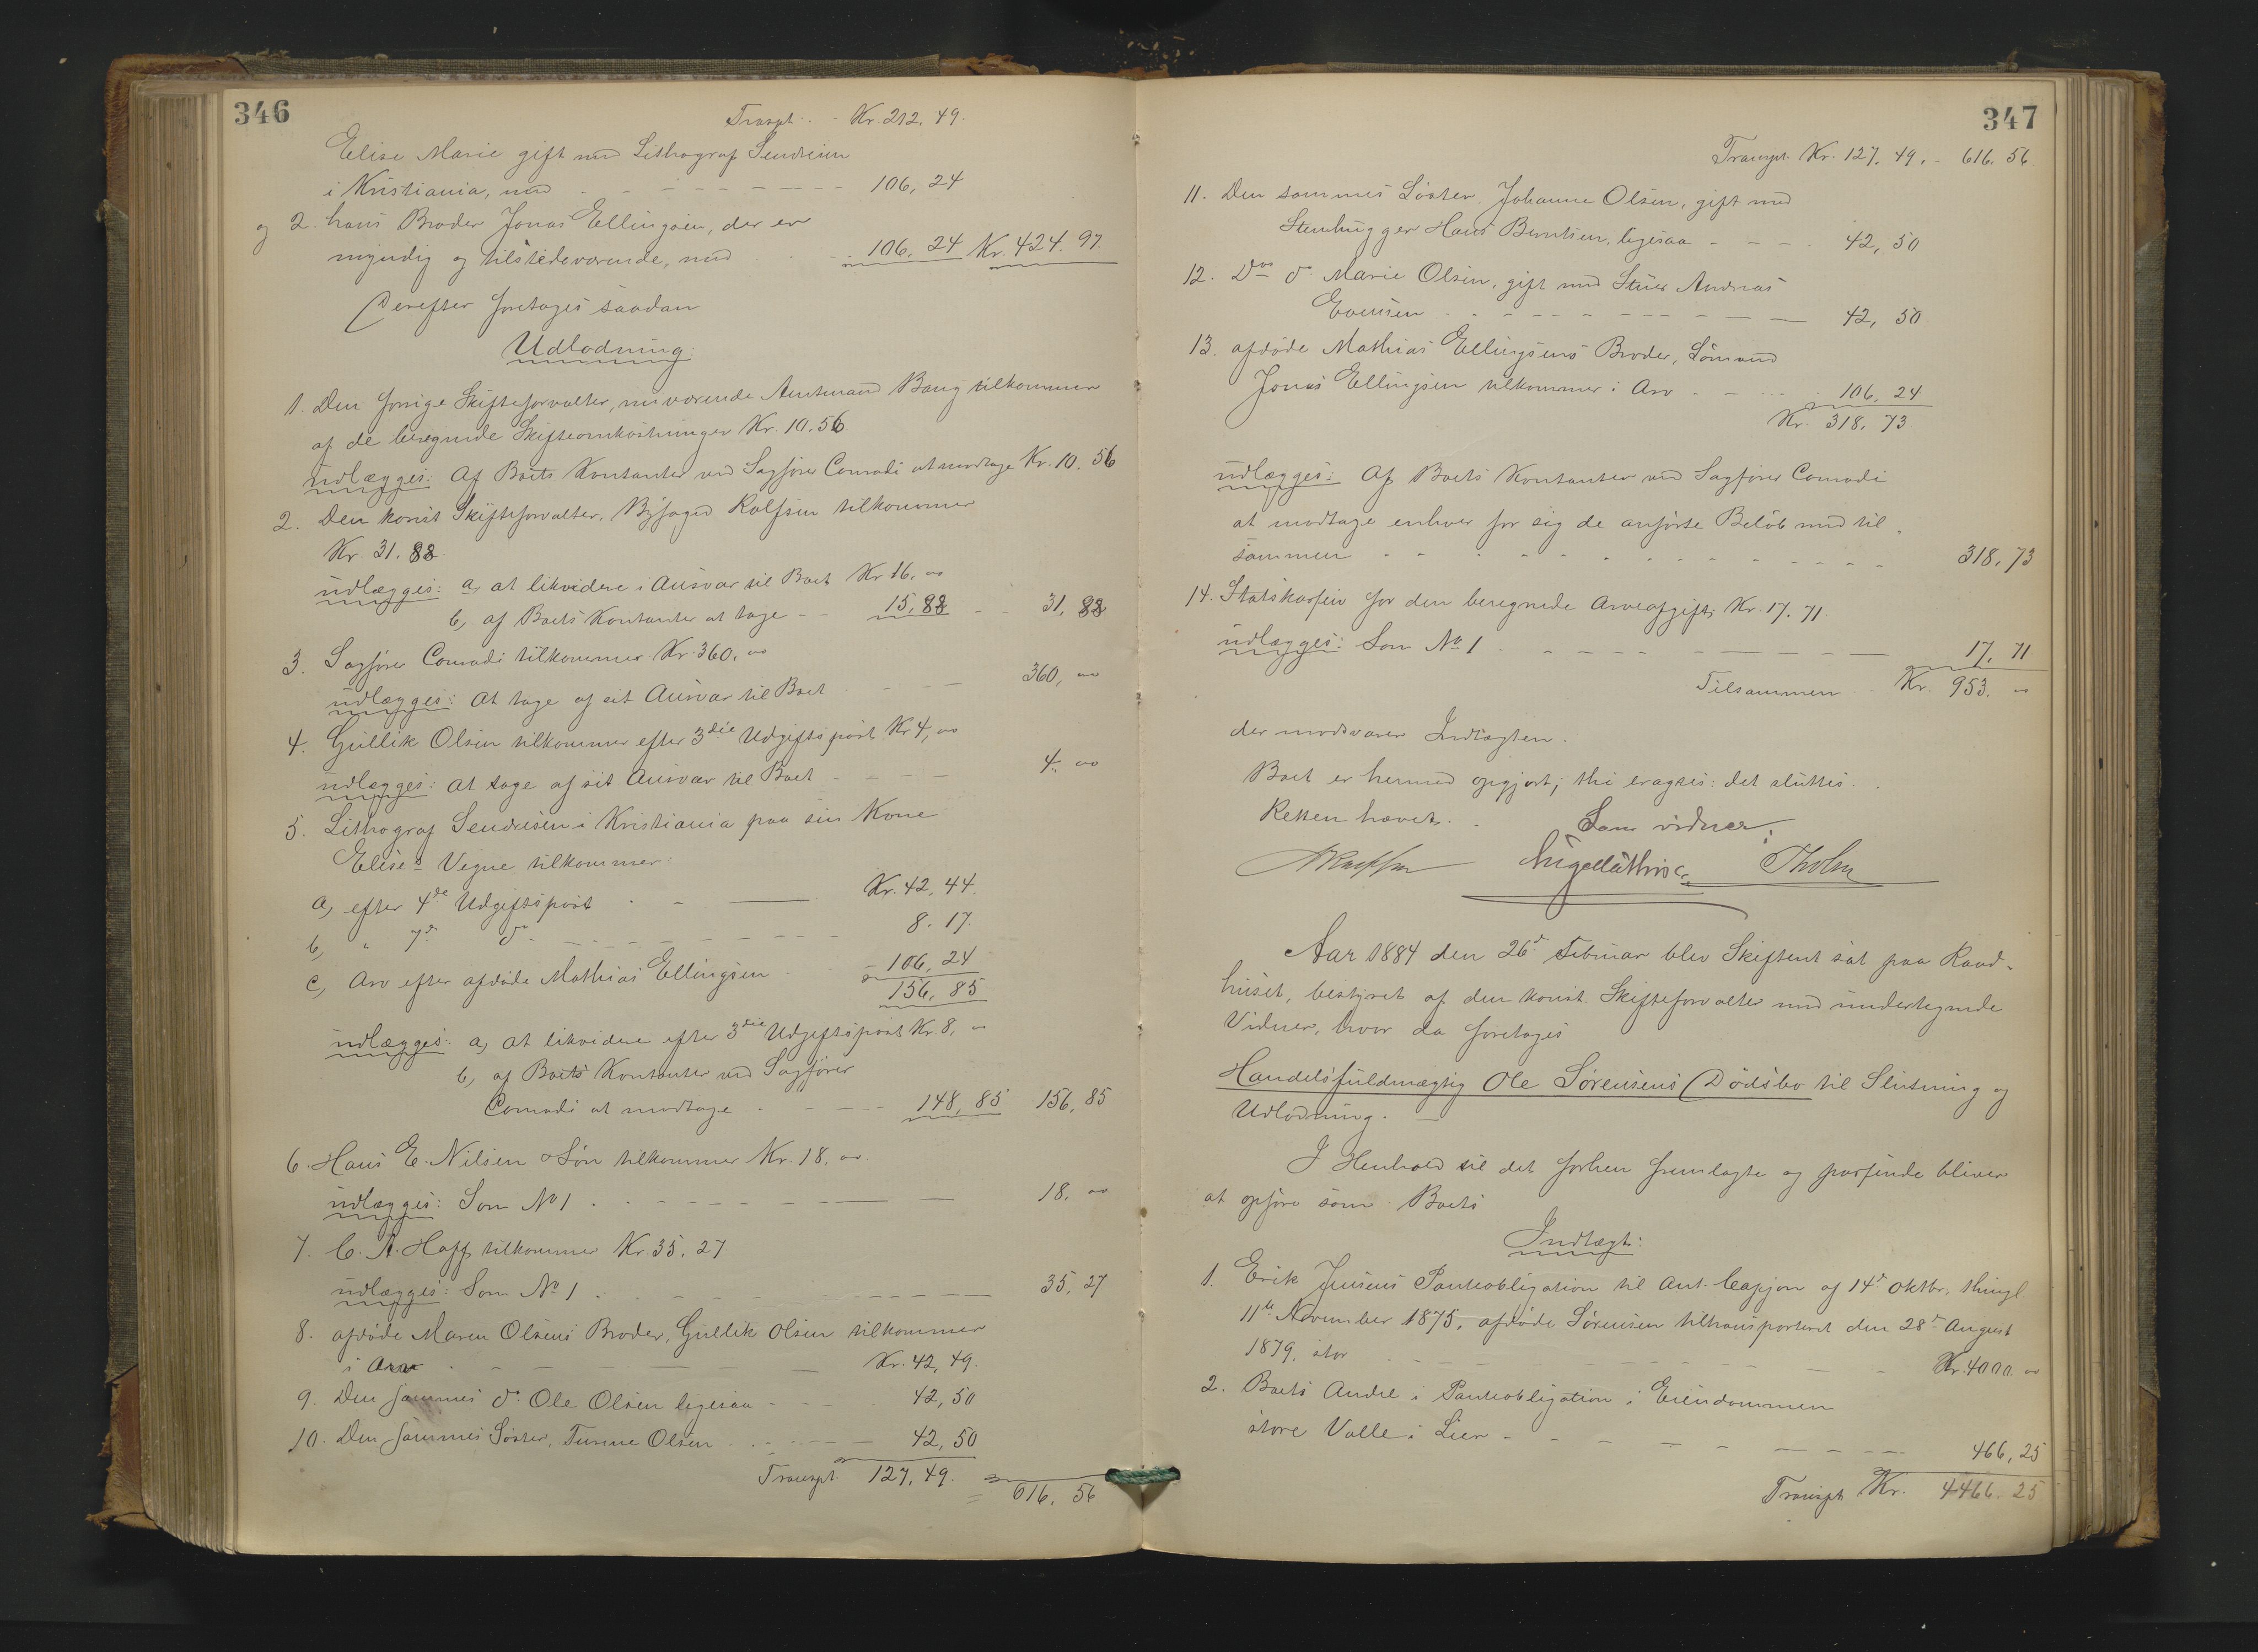 346
Transpt. - Kr. 212, 49.
Elise Marie gift med Lithograf
i Kristiania, med - - - - - 106, 24
og 2. hans Broder Jonas Ellingsen, der er
myndig og tilstedeværende, med - - 106, 24 Kr. 424. 97.
Derefter foretoges saadan
Udlodning:
1. Den forrige Skifteforvalter, nuværende Amtmand Bang tilkommer
af de beregnede Skifteomkostninger Kr. 10. 56
udlægges: Af Boets Kontanter ved Sagfører Conradi at modtage Kr. 10. 56
2. Den konst. Skifteforvalter, Byfoged Rolfsen tilkommer
Kr. 31. 88.
udlægges: a, at likvidere i Ansvar til Boet Kr 16. 00
b, af Boets Kontanter at tage - - 15, 88 - - 31, 88
3. Sagfører Conradi tilkommer Kr. 360. 00
udlægges: At tage af sit Ansvar til Boet - - - 360, 00
4. Gullik Olsen tilkommer efter 3die Udgiftspost Kr 4, 00
udlægges: At tage af sit Ansvar til Boet - - - - 4. 00
5. Lithograf i Kristiania paa sin Kone
Elises Vegne tilkommer:
a, efter 4de Udgiftspost - - Kr. 42, 44.
b, " 7d do - - - - 8. 17.
c, Arv efter afdøde Mathias Ellingsen - 106, 24
156, 85
udlægges: a, at likvidere efter 3die Udgiftspost Kr. 8, 00
b, af Boets Kontanter ved Sagfører
Conradi at modtage - - - - 148, 85 156, 85
6. Hans E. Nilsen & Søn tilkommer Kr. 18. 00.
udlægges: Som No 1 - - - - 18. 00
7. C. A. Hoff tilkommer Kr. 35. 27
udlægges: Som No 1 - - - - 35, 27
8. afdøde Maren Olsens Broder, Gullik Olsen tilkommer
i Arv - - - - Kr. 42, 49.
9. Den sammes do Ole Olsen ligesaa - - - 42, 50
10. Den sammes Søster, Olsen - - - - 42, 50
Transpt. 127, 49. = 616, 56
347
Transpt. Kr. 127. 49. - 616. 56
11. Den sammes Søster, Johanne Olsen, gift med
Stenhugger Hans Berntsen, ligesaa - - - 42, 50
12. Ds do Marie Olsen, gift med Andreas
Evensen - - - - 42, 50
13. afdøde Mathias Ellingsens Broder, Sømand
Jonas Ellingsen tilkommer i Arv - - - 106, 24
Kr. 318, 73
udlægges: Af Boets Kontanter ved Sagfører Conradi
at modtage enhver for sig de anførte Beløb med til-
sammen - - - - 318, 73
14. Statskassen for den beregnede Arveafgift Kr. 17. 71.
udlægges: Som No 1 - - - - 17. 71
Tilsammen - Kr. 953. 00
der modsvarer Indtægten.
Boet er hermed opgjort; thi eragtes: det sluttes.
Retten hævet. Som vidner:
Tholm
Aar 1884 den 26d Februar blev Skifteret sat paa Raad-
huset, bestyret af den konst. Skifteforvalter med undertegnede
Vidner, hvor da foretoges
Handelsfuldmægtig Ole Sørensens Dødsbo til Slutning og
Udlodning.
I Henhold til det forhen fremlagte og passerede bliver
at opføre som Boets
Indtægt:
1. Erik Jensens Panteobligation til Ant. af 14d Oktbr, thingl.
11te November 1875, afdøde Sørensen tiltransporteret den 28d August
1879, stor - - - - Kr. 4000. 00
2. Boets Andel i Panteobligation i Eiendommen
store Valle i Lier - - - - 466, 25
Transpt. Kr. 4466. 25